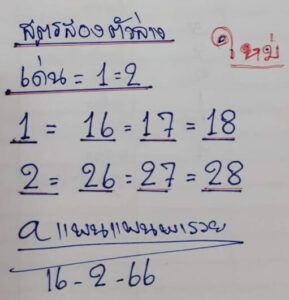 สูตรสองตัวล่าง
ใหม่
เด่น = 1 = 2
1 = 16 = 17 = 18
2 = 26 = 27 = 28
a แพนแพนพารวย
16-2-66